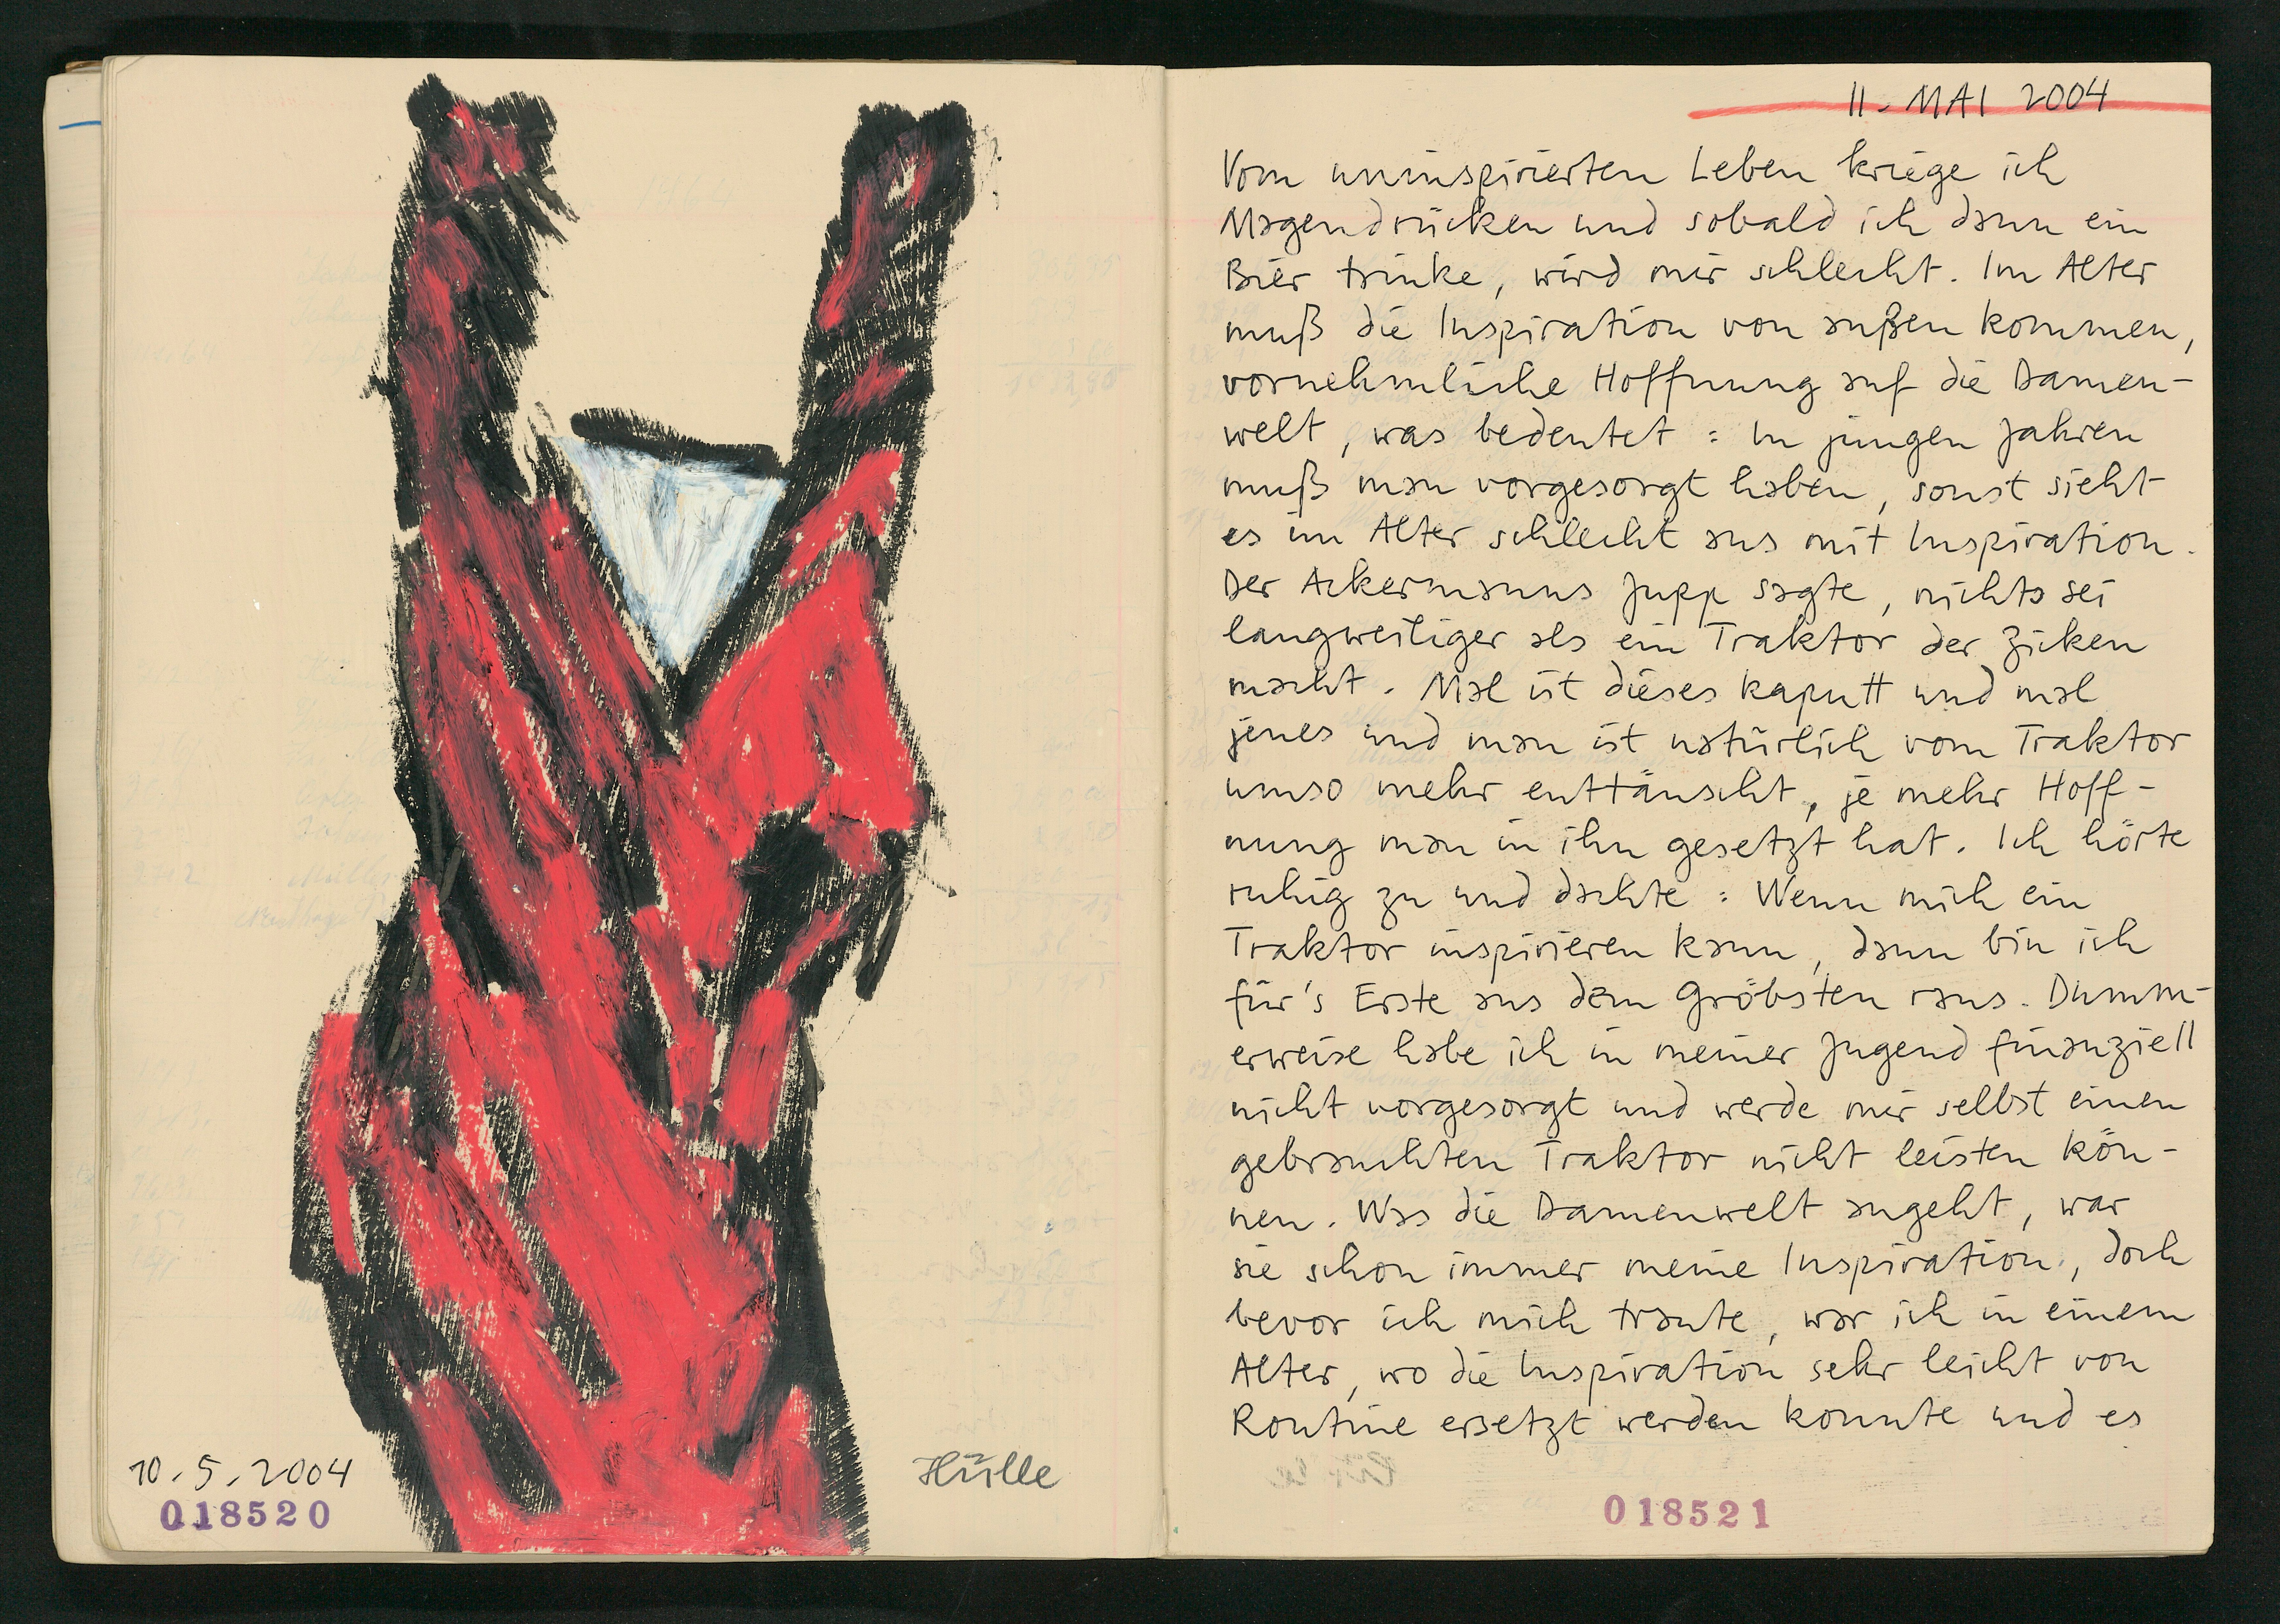 10.5.2004
Hülle
018520
11. MAI 2004
Vom uninspirierten Leben kriege ich
Magendrücken und sobald ich dann ein
Bier trinke, wird mir schlecht. Im Alter
muß die Inspiration von außen kommen,
vornehmliche Hoffnung auf die Damen-
welt, was bedeutet: In jungen Jahren
muß man vorgesorgt haben, sonst sieht
es im Alter schlecht aus mit Inspiration.
Der Ackermanns Jupp sagte, nichts sei
langweiliger als ein Traktor der Zicken
macht. Mal ist dieses kaputt und mal
jenes und man ist natürlich vom Traktor
umso mehr enttäuscht, je mehr Hoff-
nung man in ihn gesetzt hat. Ich hörte
ruhig zu und dachte: Wenn mich ein
Traktor inspirieren kann, dann bin ich
für's Erste aus dem Gröbsten raus. Dumm-
erweise habe ich in meiner Jugend finanziell
nicht vorgesorgt und werde mir selbst einen
gebrauchten Traktor nicht leisten kön-
nen. Was die Damenwelt angeht, war
sie schon immer meine Inspiration, doch
bevor ich mich traute, war ich in einem
Alter, wo die Inspiration sehr leicht von
Routine ersetzt werden konnte und es
018521